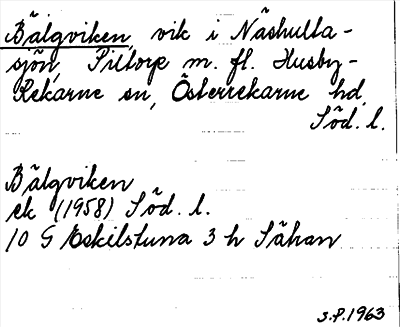 Bälgviken, vik i Näshulta-
sjön, Piltorp m. fl. Husby-
Rekarne sn, Österrekarne hd,
Söd. l.
Bälgviken
ek (1958) Söd. l.
10 G Eskilstuna 3 h Sähan
S.P. 1963